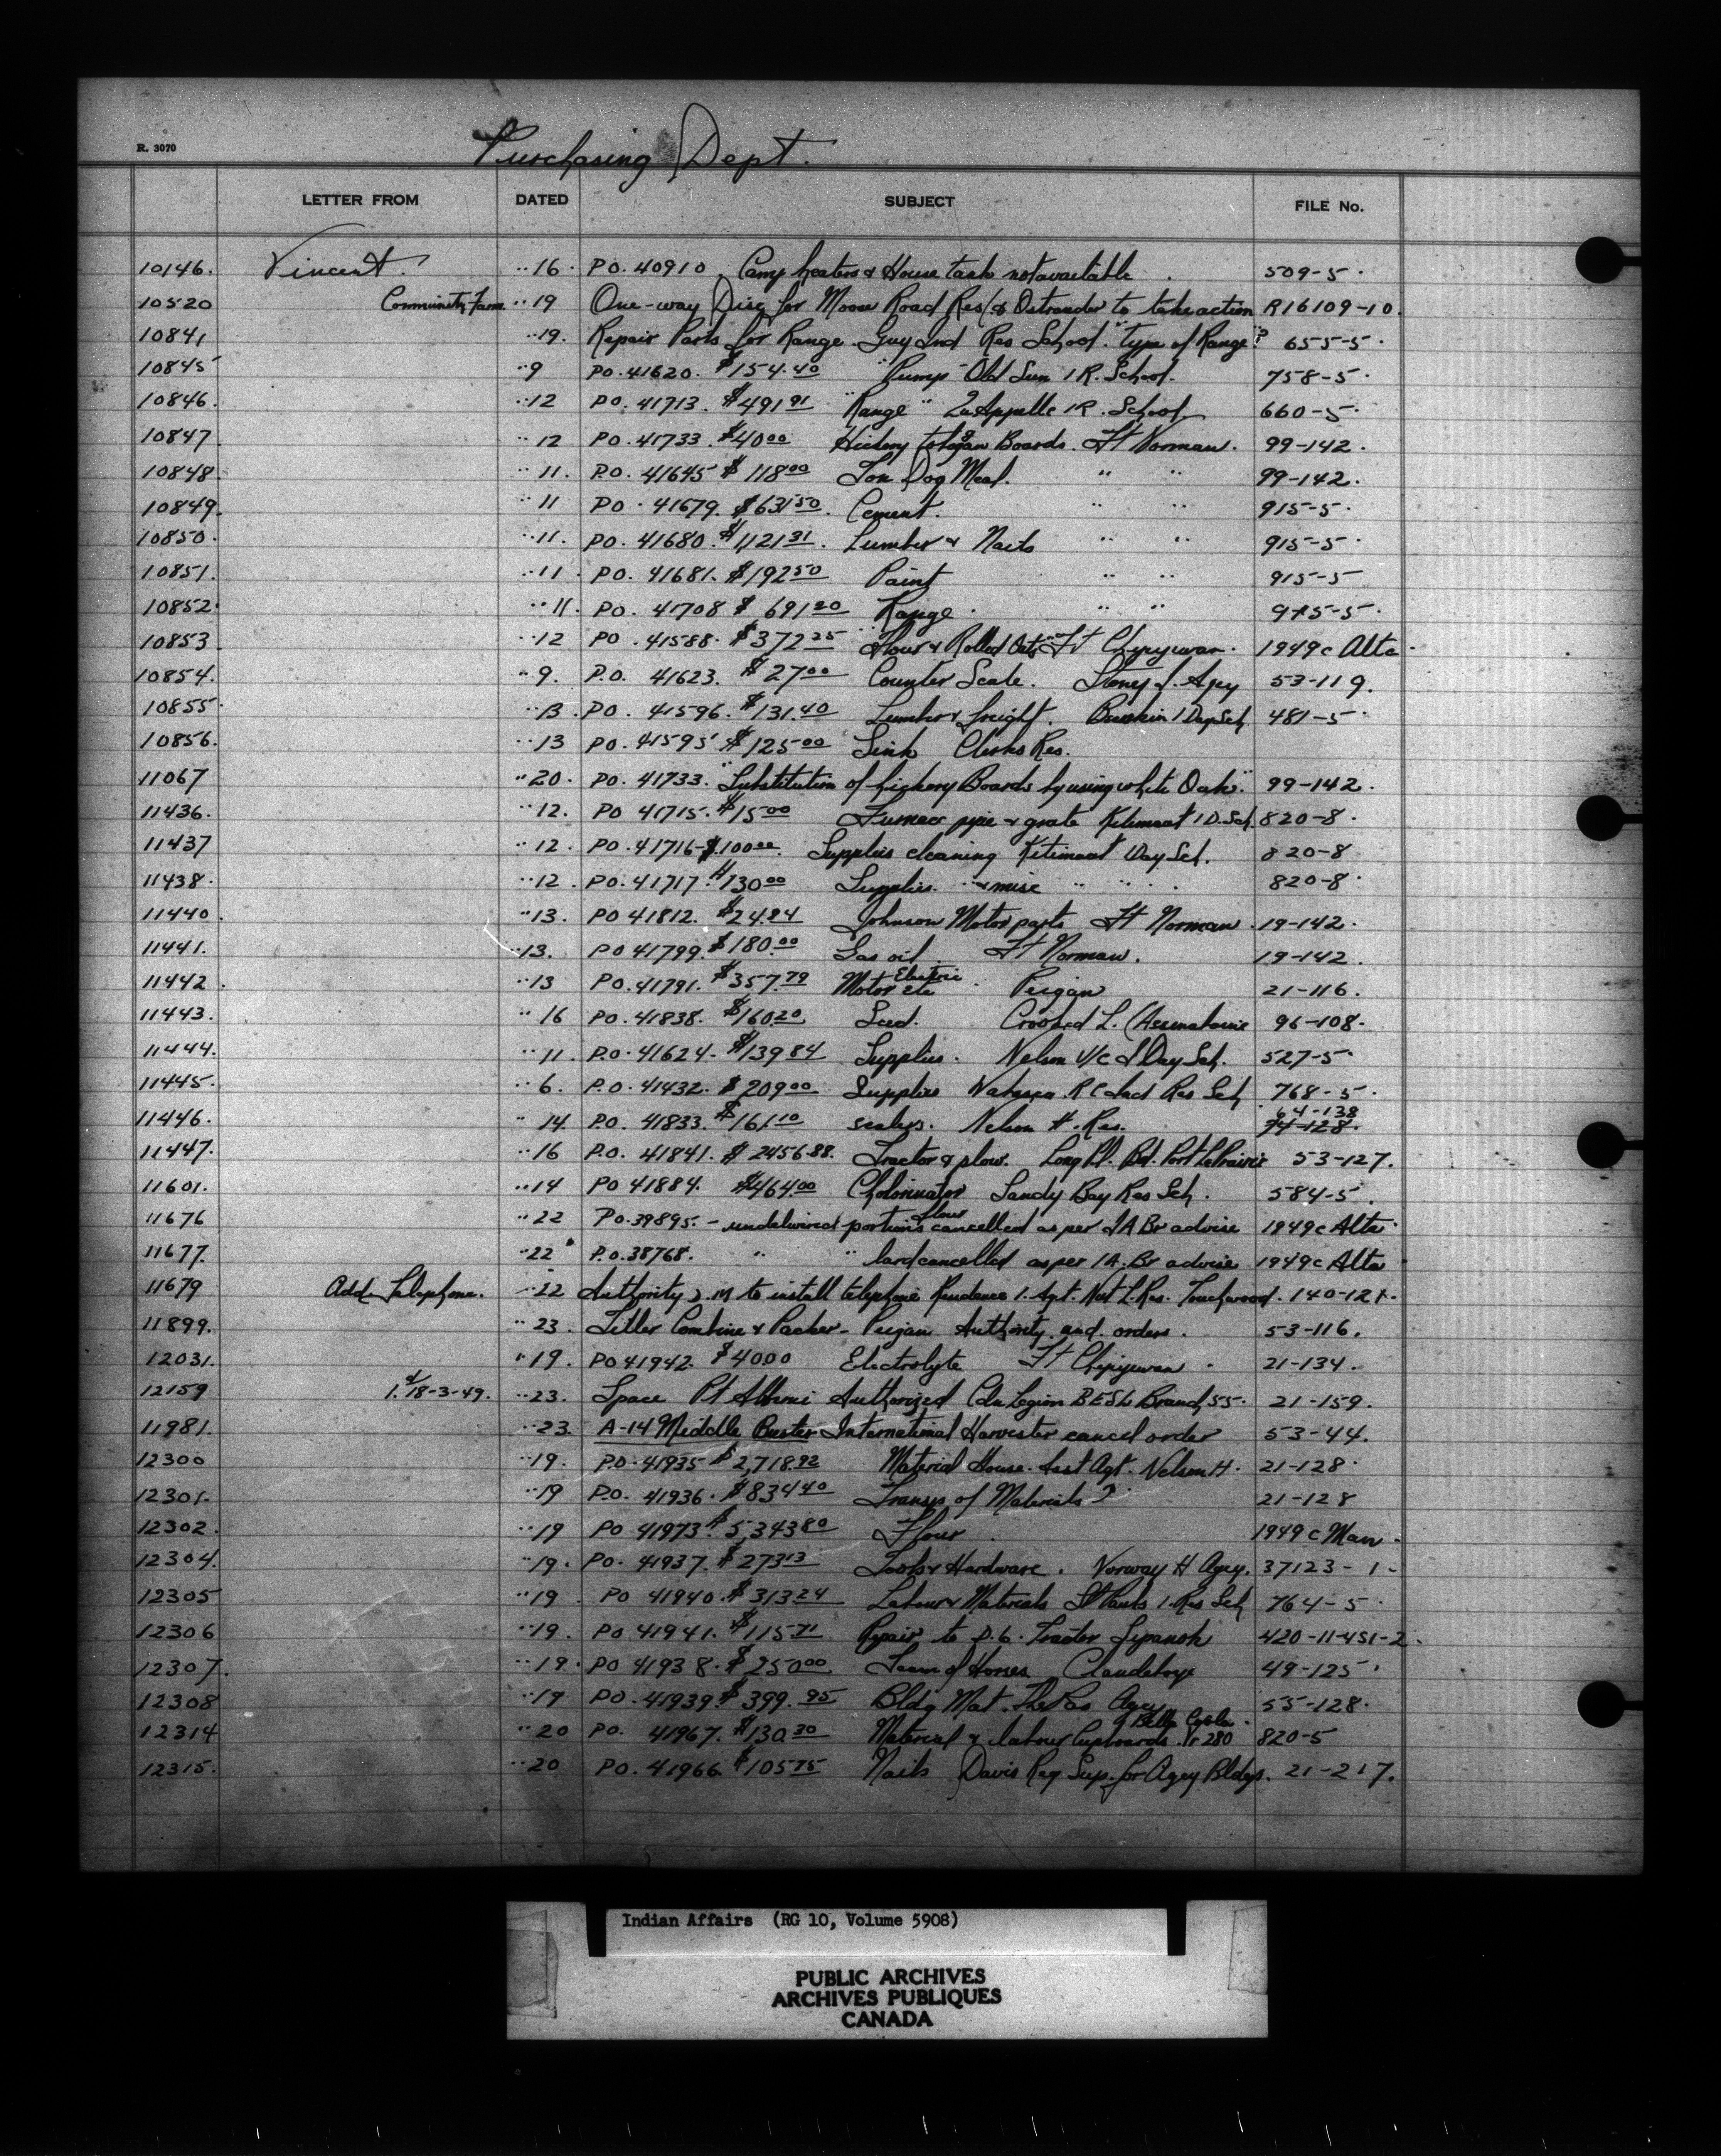 R. 3070
Purchasing Dept.
LETTER FROM DATED SUBJECT FILE No.
10146. Vincent. ··16· P.O. 40910. Camp heaters & House tank not available. 509-5·
10520 Community Farm ··19 One-way Disc for Moose Road Res & Ostrander to take action R16109-10.
10841 ··19. Repair Parts for Range. Guy Ind Res School. "type of Range"? 655-5·
10845 ··9 PO. 41620. $154.40 "Pump" Old Sun I R. School. 758-5·
10846. ··12 PO. 41713. $491 91 "Range" Qu Appelle I R. School 660-5·
10847 ··12 PO. 41733. $40 00 Hickory toboggan Boards. Ft Norman. 99-142.
10848. ··11. P.O. 41645 $118 00 Ton Dog Meal. " " 99-142.
10849. ··11 PO. 41679. $631 50. Cement. " " 915-5·
10850. ··11. PO. 41680. $1,121 31. Lumber & Nails " " 915-5·
10851. ··11. PO. 41681. $192 50 Paint " " 915-5
10852. ··11. PO. 41708 $691 20 Range. " " 915-5·
10853 ··12 PO. 41588. $372 25 Flour & Rolled Oats Ft Chipywan. 1949c Alta
10854. ··9. P.O. 41623. $27 00 Counter Scale. Stoney S. Agcy 53-119.
10855. ··13. PO. 41596. $131.40 Lumber & freight. I Day Sch 481-5·
10856. ··13 PO. 41595 $125 00 Sink Clerks Res.
11067 ··20. PO. 41733. "Substitution of hickory Boards by using white Oak." 99-142.
11436. ··12. PO 41715. $15 00 Furnace pipe & grate Kitimaat I D. Sch. 820-8·
11437 ··12. PO. 41716-$100 00. Supplies cleaning Kitimaat Day Sch. 820-8
11438. ··12. PO. 41717. $130 00 Supplies. " & misc " " 820-8·
11440. ··13. PO 41812. $24.24 Johnson Motor parts Ft Norman. 19-142.
11441. ··13. PO 41799. $180.00 Gas oil. Ft Norman. 19-142.
11442. ··13 PO. 41791. $357.79 Motor Electric etc. Peigan 21-116.
11443. ··16 PO. 41838. $160.20 Seed. Crooked L. (Assinaboine 96-108.
11444. ··11. P.O. 41624. $139 84 Supplies. Nelson U/C I Day Sch. 527-5·
11445. ··6. P.O. 41432. $209 00 Supplies RC Ind Res Sch 768-5·
11446. ··14. PO. 41833. $161 10 scalers. Nelson H. Res. 64-138 74-128.
11447. ··16 P.O. 41841. $2456.88. Tractor & plow. Long Pl. Bd. Port LaPrairie 53-127.
11601. ··14 PO 41884. $464 00 Cholorinator Sandy Bay Res Sch. 584-5.
11676 ··22 P.O. 39895. - undelivered portions flour cancelled as per I A Br advise 1949c Alta·
11677. ··22 P.O. 38768. " " lard cancelled as per I A. Br advise 1949c Alta
11679 Add. Telephone. ··22 Authority to install telephone Residence I. Agt. Nut L. Res. Touchwood. 140-121.
11899. ··23. Tiller Combine & Packer - Peigan Authority and orders. 53-116.
12031. ··19. PO 41942. $40 00 Electrolyte Ft Chipyewan. 21-134.
12159 18-3-49. ··23. Space Pt Alberni Authorized Cdn Legion BESL Branch 55. 21-159.
11981. ··23. A-14 Middle Buster International Harvester cancel order 53-44.
12300 ··19. P.O. 41935 $2,718.92 Material House. Asst Agt. Nelson H. 21-128.
12301. ··19 P.O. 41936. $834 40 Transp of Materials? 21-128
12302. ··19 PO 41973 $5,343 80 Flour. 1949 c Man.
12304. ··19. PO. 41937. $273 13 Tools & Hardware. Norway H Agcy. 37123-1-
12305 ··19 PO 41940. $313 24 Labour & Materials St Pauls I. Res Sch 764-5·
12306 ··19. PO 41941. $115 71 Repair to D.6. Tractor Sipanok 420-11-451-2.
12307. ··19. PO 41938. $250 00 Team of Horses Clandeboye 49-125.
12308 ··19 PO. 41939. $399.95 Bldg Mat. The Pas Agcy 55-128.
12314 ··20 PO. 41967. $130 30 Material & labour Cupboards. Bella Coola. Yr 280 820-5
12315. ··20 PO. 41966 $105 75 Nails Davis Reg Sup. for Agcy Bldgs. 21-217.
Indian Affairs (RG 10, Volume 5908)
PUBLIC ARCHIVES
ARCHIVES PUBLIQUES
CANADA